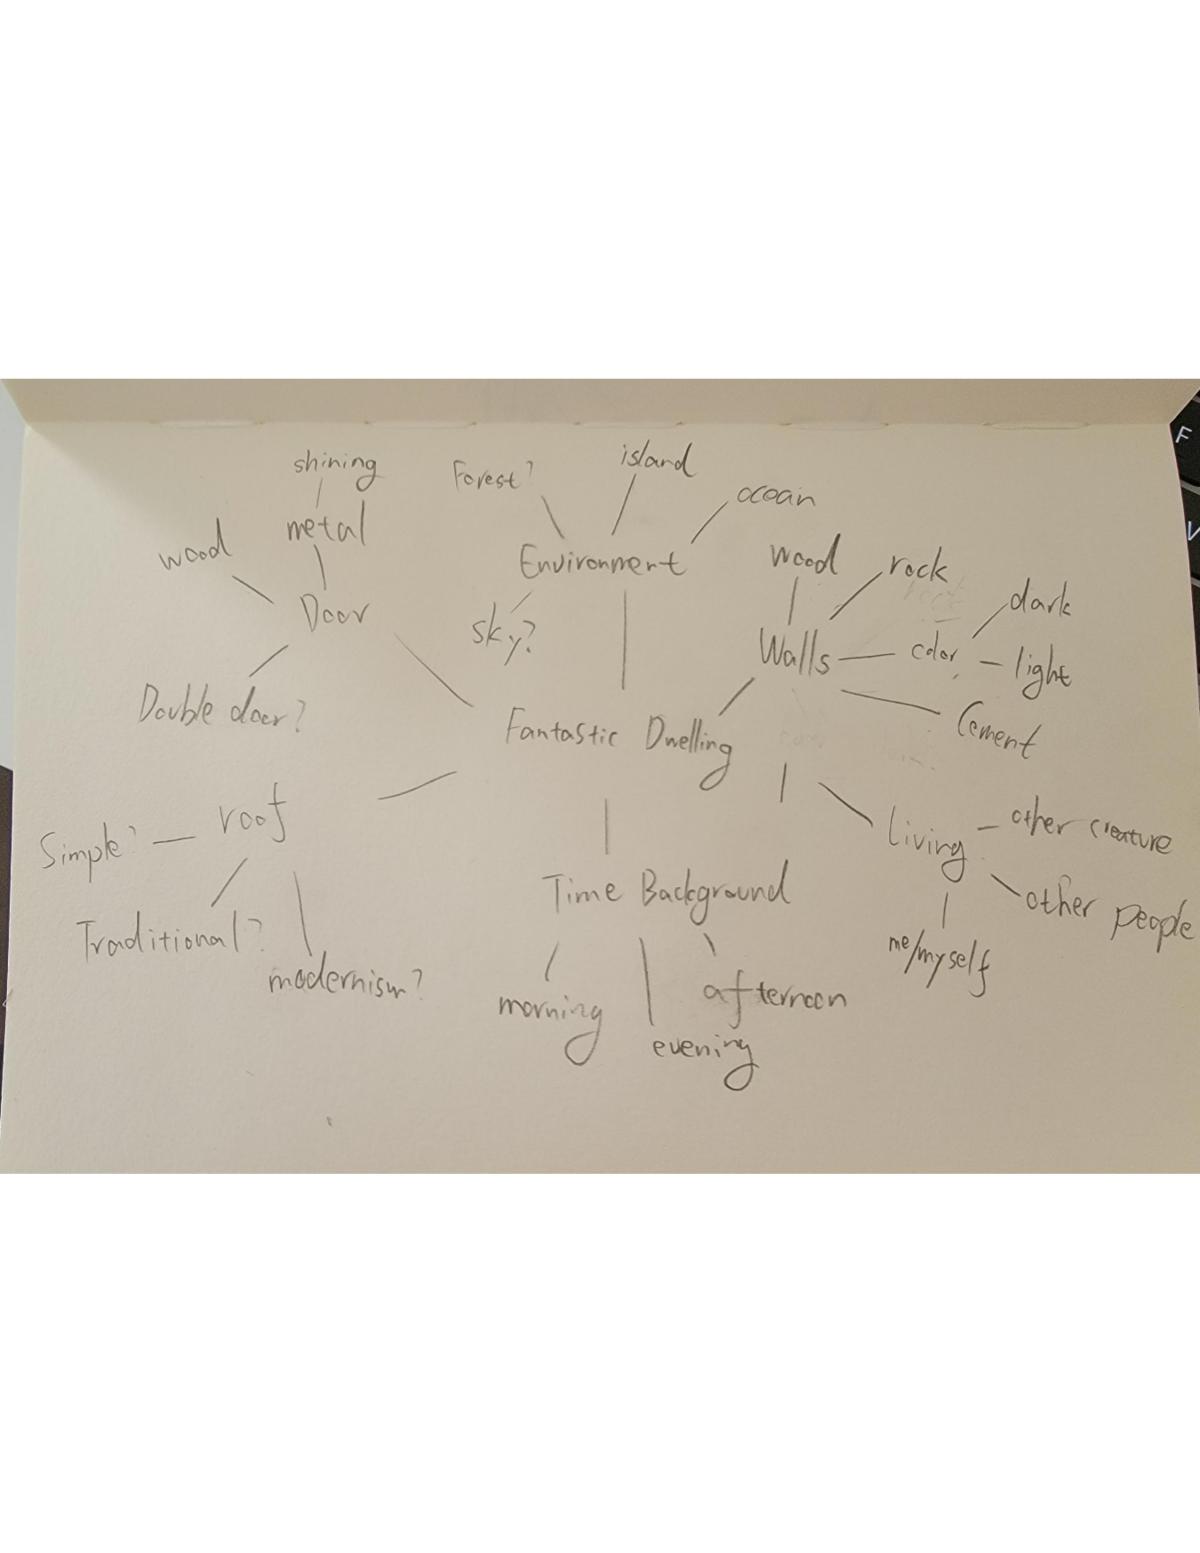 shining
Forest?
island
ocean
wood
metal
Environment
wood
rock
Door
sky?
dark
Walls
color
light
Double door?
Fantastic Dwelling
Cement
roof
Simple?
Living
other creature
Time Background
other people
Traditional?
modernism?
me/myself
morning
afternoon
evening
F
V